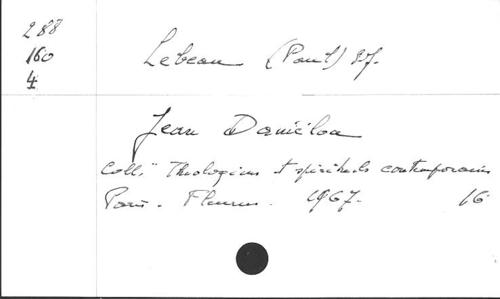 288
160
4
Lebeau (Paul) sj.
Jean Daniélou
Coll. "Théologiens et spirituels contemporains
Paris. Fleurus. 1967. 16